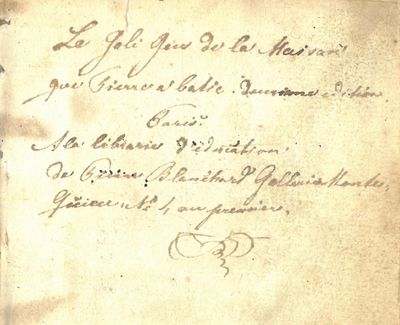 Le Joli Jeu de la Maison
que Pierre a batie. Deuxieme edition
Paris.
A la librairie d'éducation
de Pierre Blanchard, Gallerie Montes,
Quieu, N° 1, au premier.